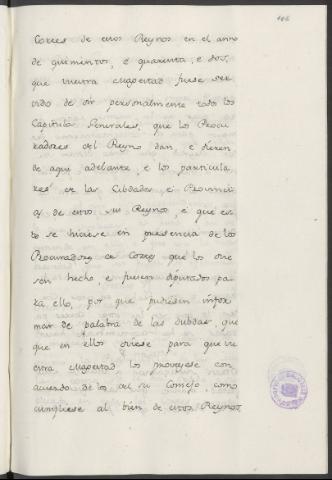 Cortes de estos Reynos en el anno
de quinientos, é quarenta, e dos,
que vuestra magestad fuese ser-
vido de oir personalmente todo los
Capitulos Generales, que los Procu-
radores del Reyno dan, e dieren
de aqui adelante, e los particula-
res de las Cibdades, é Provinci-
as de estos sus Reynos, é que es-
to se hiciese en presencia de los
Procuradores de Cortes que los ovie-
sen hecho, e fuesen diputados pa-
ra ello, por que pudiesen infor-
mar de palabra de las dubdas, que
que en ellos oviese para que vu-
estra magestad los proveyese con
acuerdo de los del su Consejo, como
cumpliese al bien de estos Reynos,